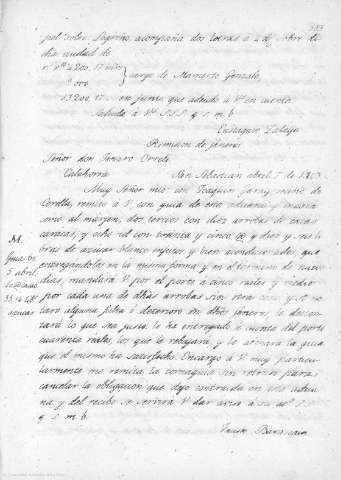 pel sobre Logroño, acompaña dos letras á 4 d/ sobre di-
cha ciudad de
cargo de Mamerto Gonzalo,
13200, 17 en junto que adeudo á V en cuenta
Saluda á V. S.S.S. q s m b
Eustaquio
Remision de géneros
Señor don Genaro
Calahorra San Sebastian abril 7 de
Muy Señor mio: con Joaquin Garay vecino de
Corella, remito á V. con guia de esta aduana y marca
como al margen, dos tercios con diez arrobas de cacao
caracas, y ocho id con treinta y cinco @ y diez y seis li-
bras de azucar blanco, enjutos y bien acondicionados, que
entregándolos en la misma forma y en el termino de nueve
dias, mandará V por el porte á cinco reales y medio
por cada una de dhas arrobas sin otra cosa, y si no-
tare alguna falta ó deterioro en dhos géneros, le descon-
tará lo que sea justo: le he entregado á cuenta del porte
cuarenta reales los que le rebajará, y le abonará la guia
que él mismo ha satisfecho. Encargo á V. muy particu-
larmente me remita la tornaguia sin retraso para
cancelar la obligacion que dejo contraida en esta adua-
na y del recibo se servirá V dar aviso á su at.º S.S.
q s m b.
M.
Guia
5 abril
10 @ cacao
azucar